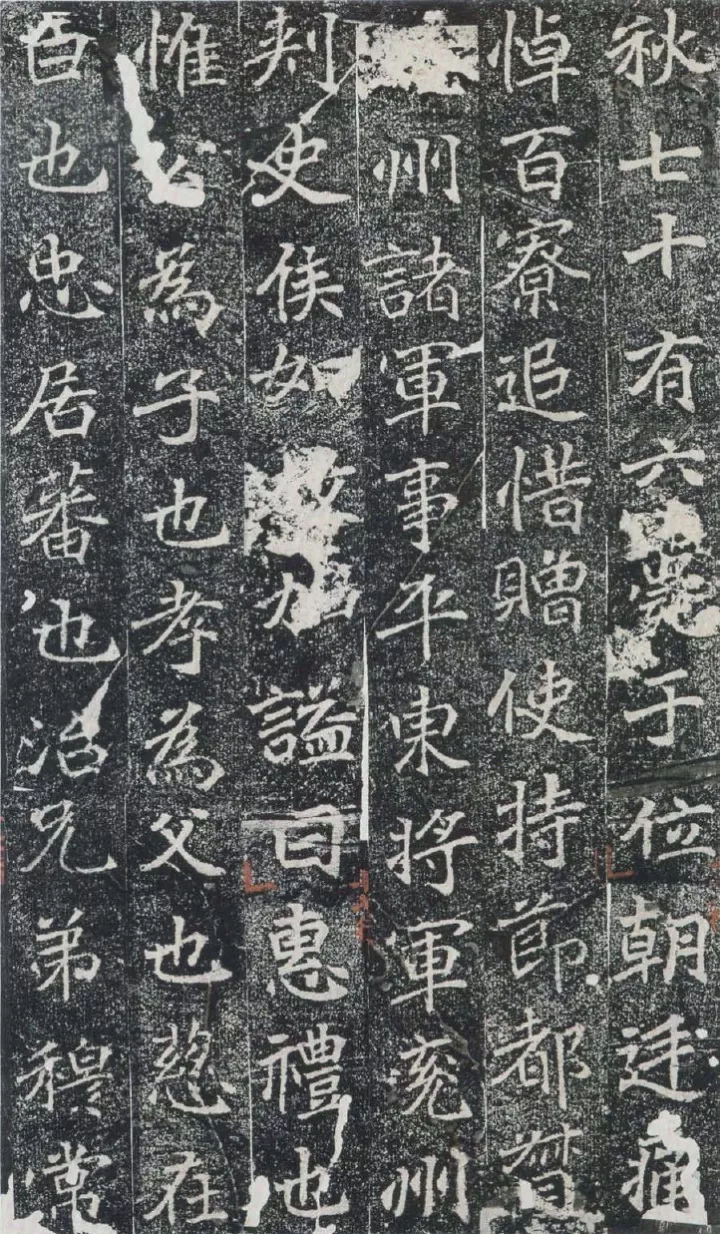 秋七十有六薨于位朝廷痛
悼百寮追惜贈使持節都督
州諸軍事平東將軍兖州
刾史侯如故加謚曰惠禮也
惟公為子也孝為父也慈在
臣也忠居蕃也治兄弟穆常